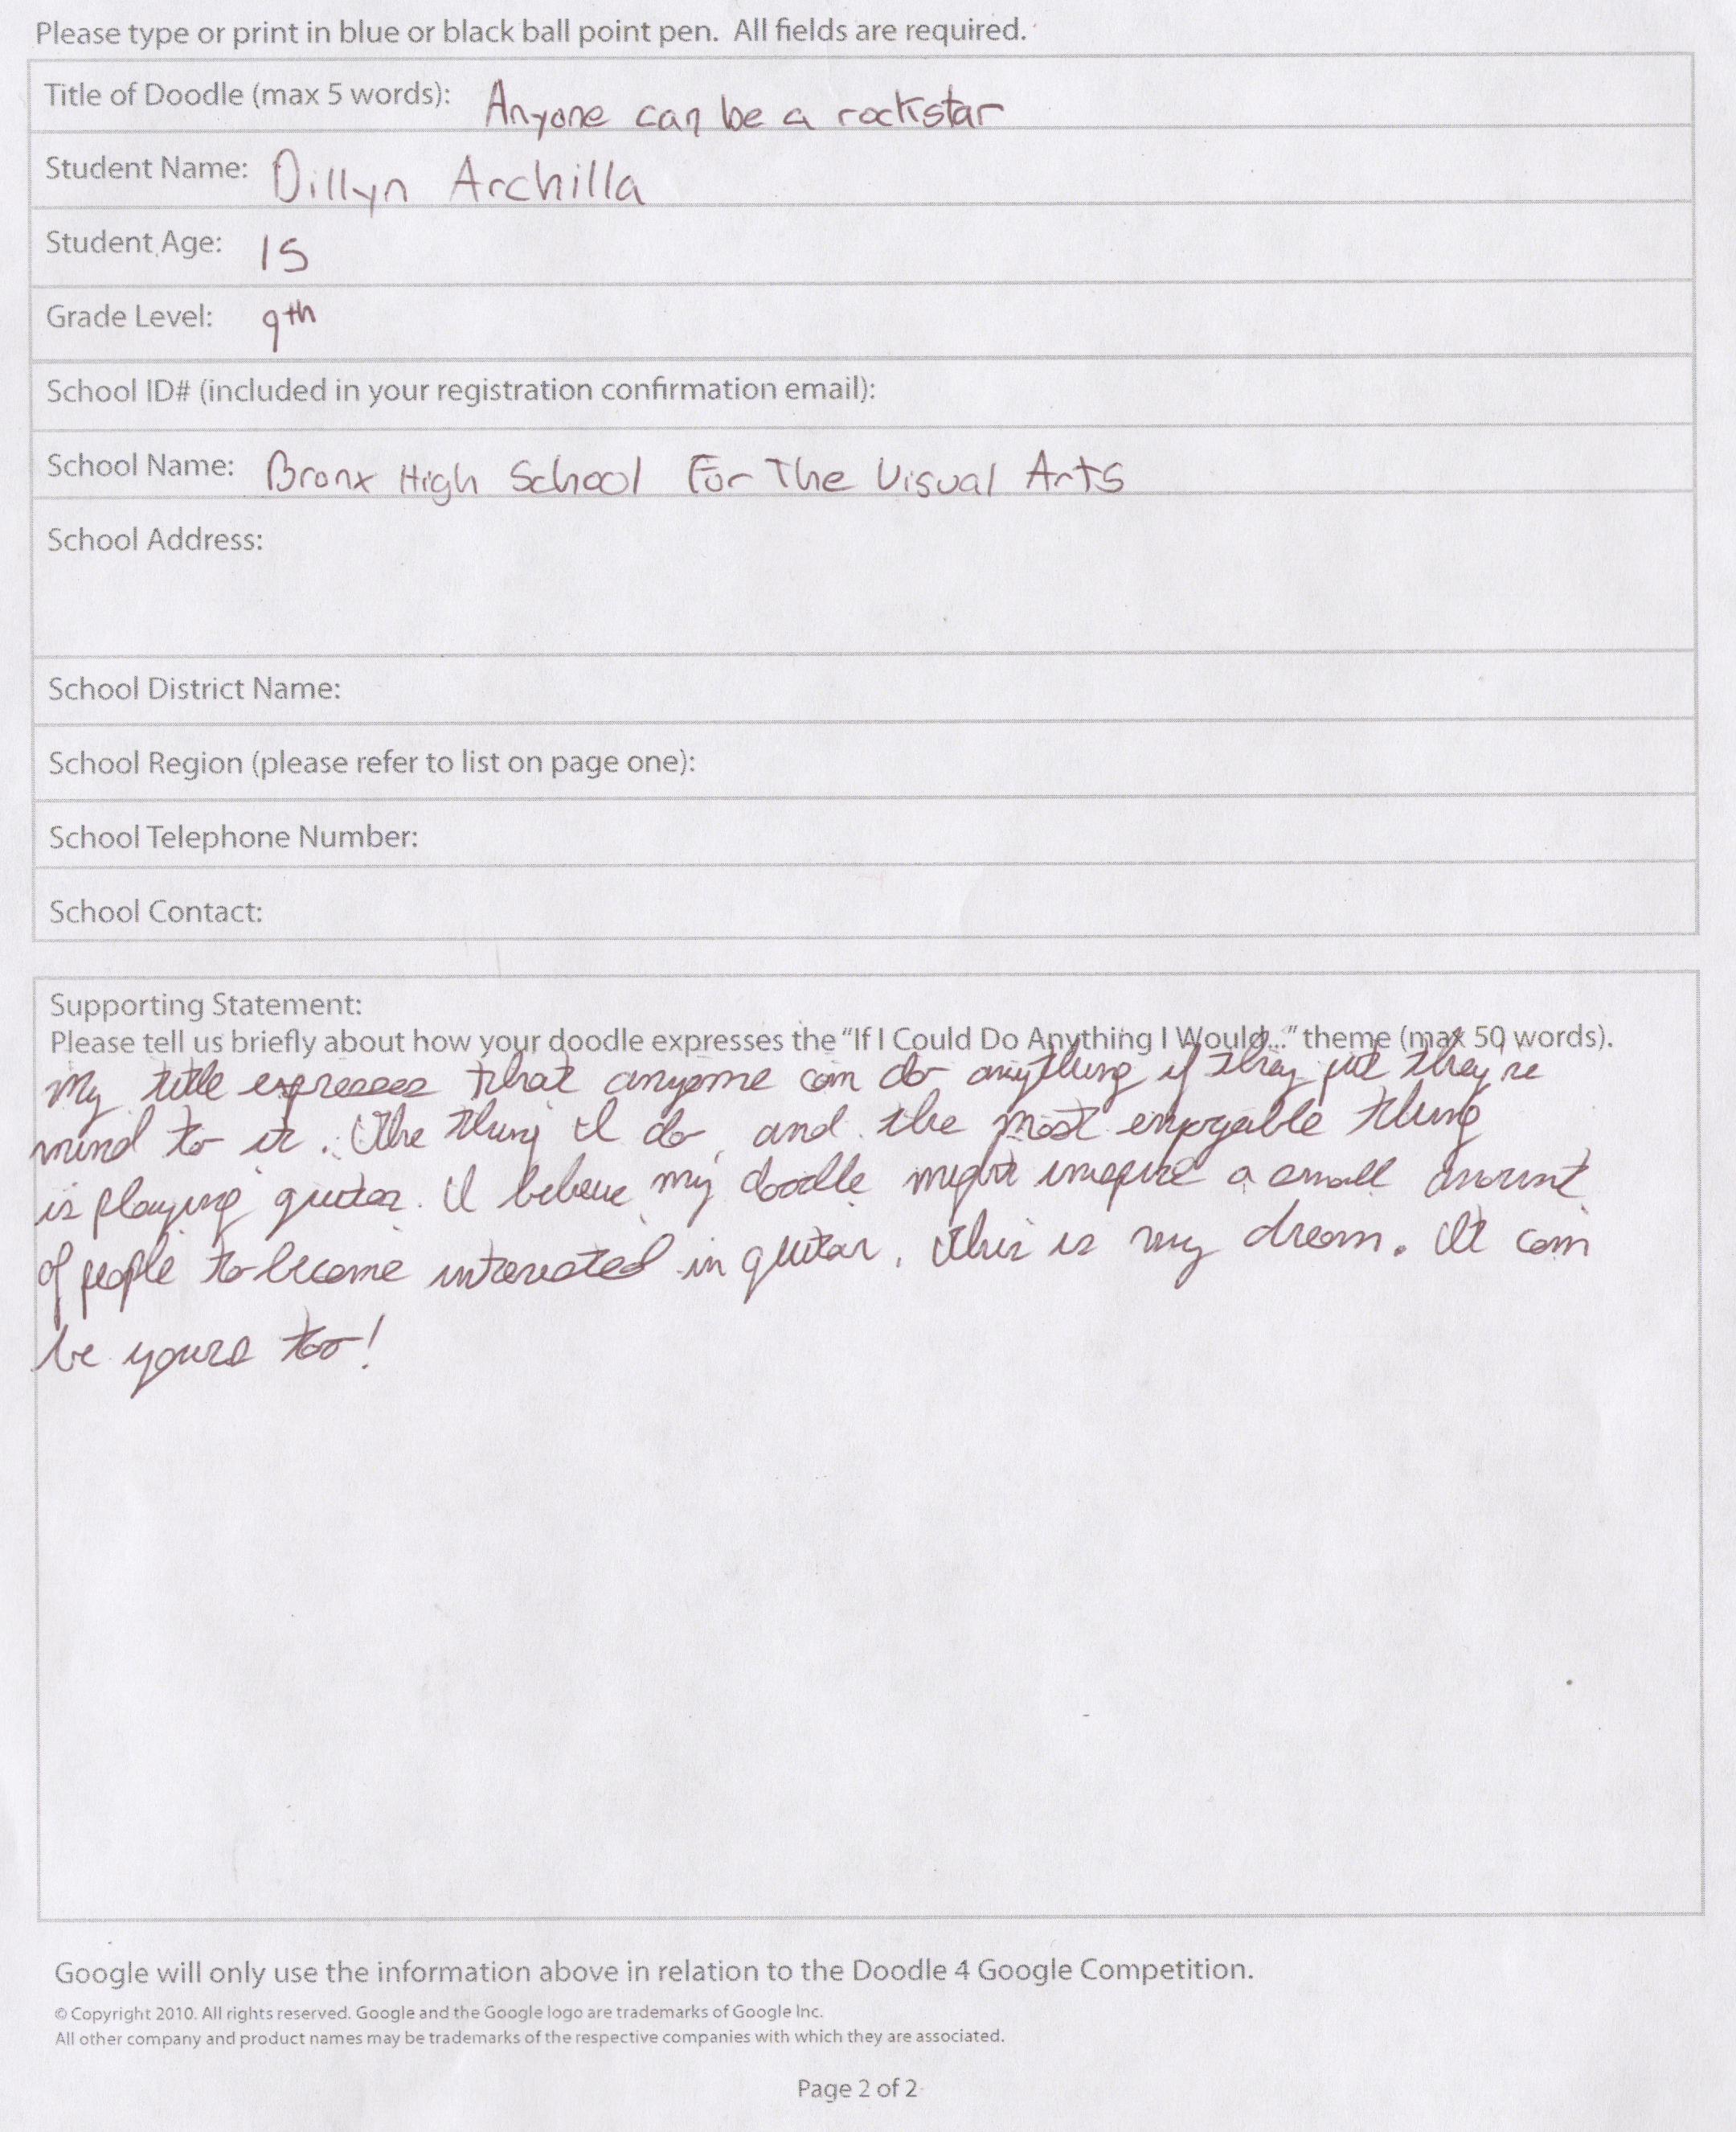 Please type or print in blue or black ball point pen. All fields are required.
Title of Doodle (max 5 words): Anyone can be a rockstar
Student Name: Dillyn Archilla
Student Age: 15
Grade Level: 9th
School ID# (included in your registration confirmation email):
School Name: Bronx High School For The Visual Arts
School Address:
School District Name:
School Region (please refer to list on page one):
School Telephone Number:
School Contact:
Supporting Statement:
Please tell us briefly about how your doodle expresses the "If I Could Do Anything I Would..." theme (max 50 words).
My title expresses that anyone can do anything if they put they're
mind to it. The thing I do, and the most enjoyable thing
is playing guitar. I believe my doodle might inspire a small amount
of people to become interested in guitar. This is my dream. It can
be yours too!
Google will only use the information above in relation to the Doodle 4 Google Competition.
© Copyright 2010. All rights reserved. Google and the Google logo are trademarks of Google Inc.
All other company and product names may be trademarks of the respective companies with which they are associated.
Page 2 of 2